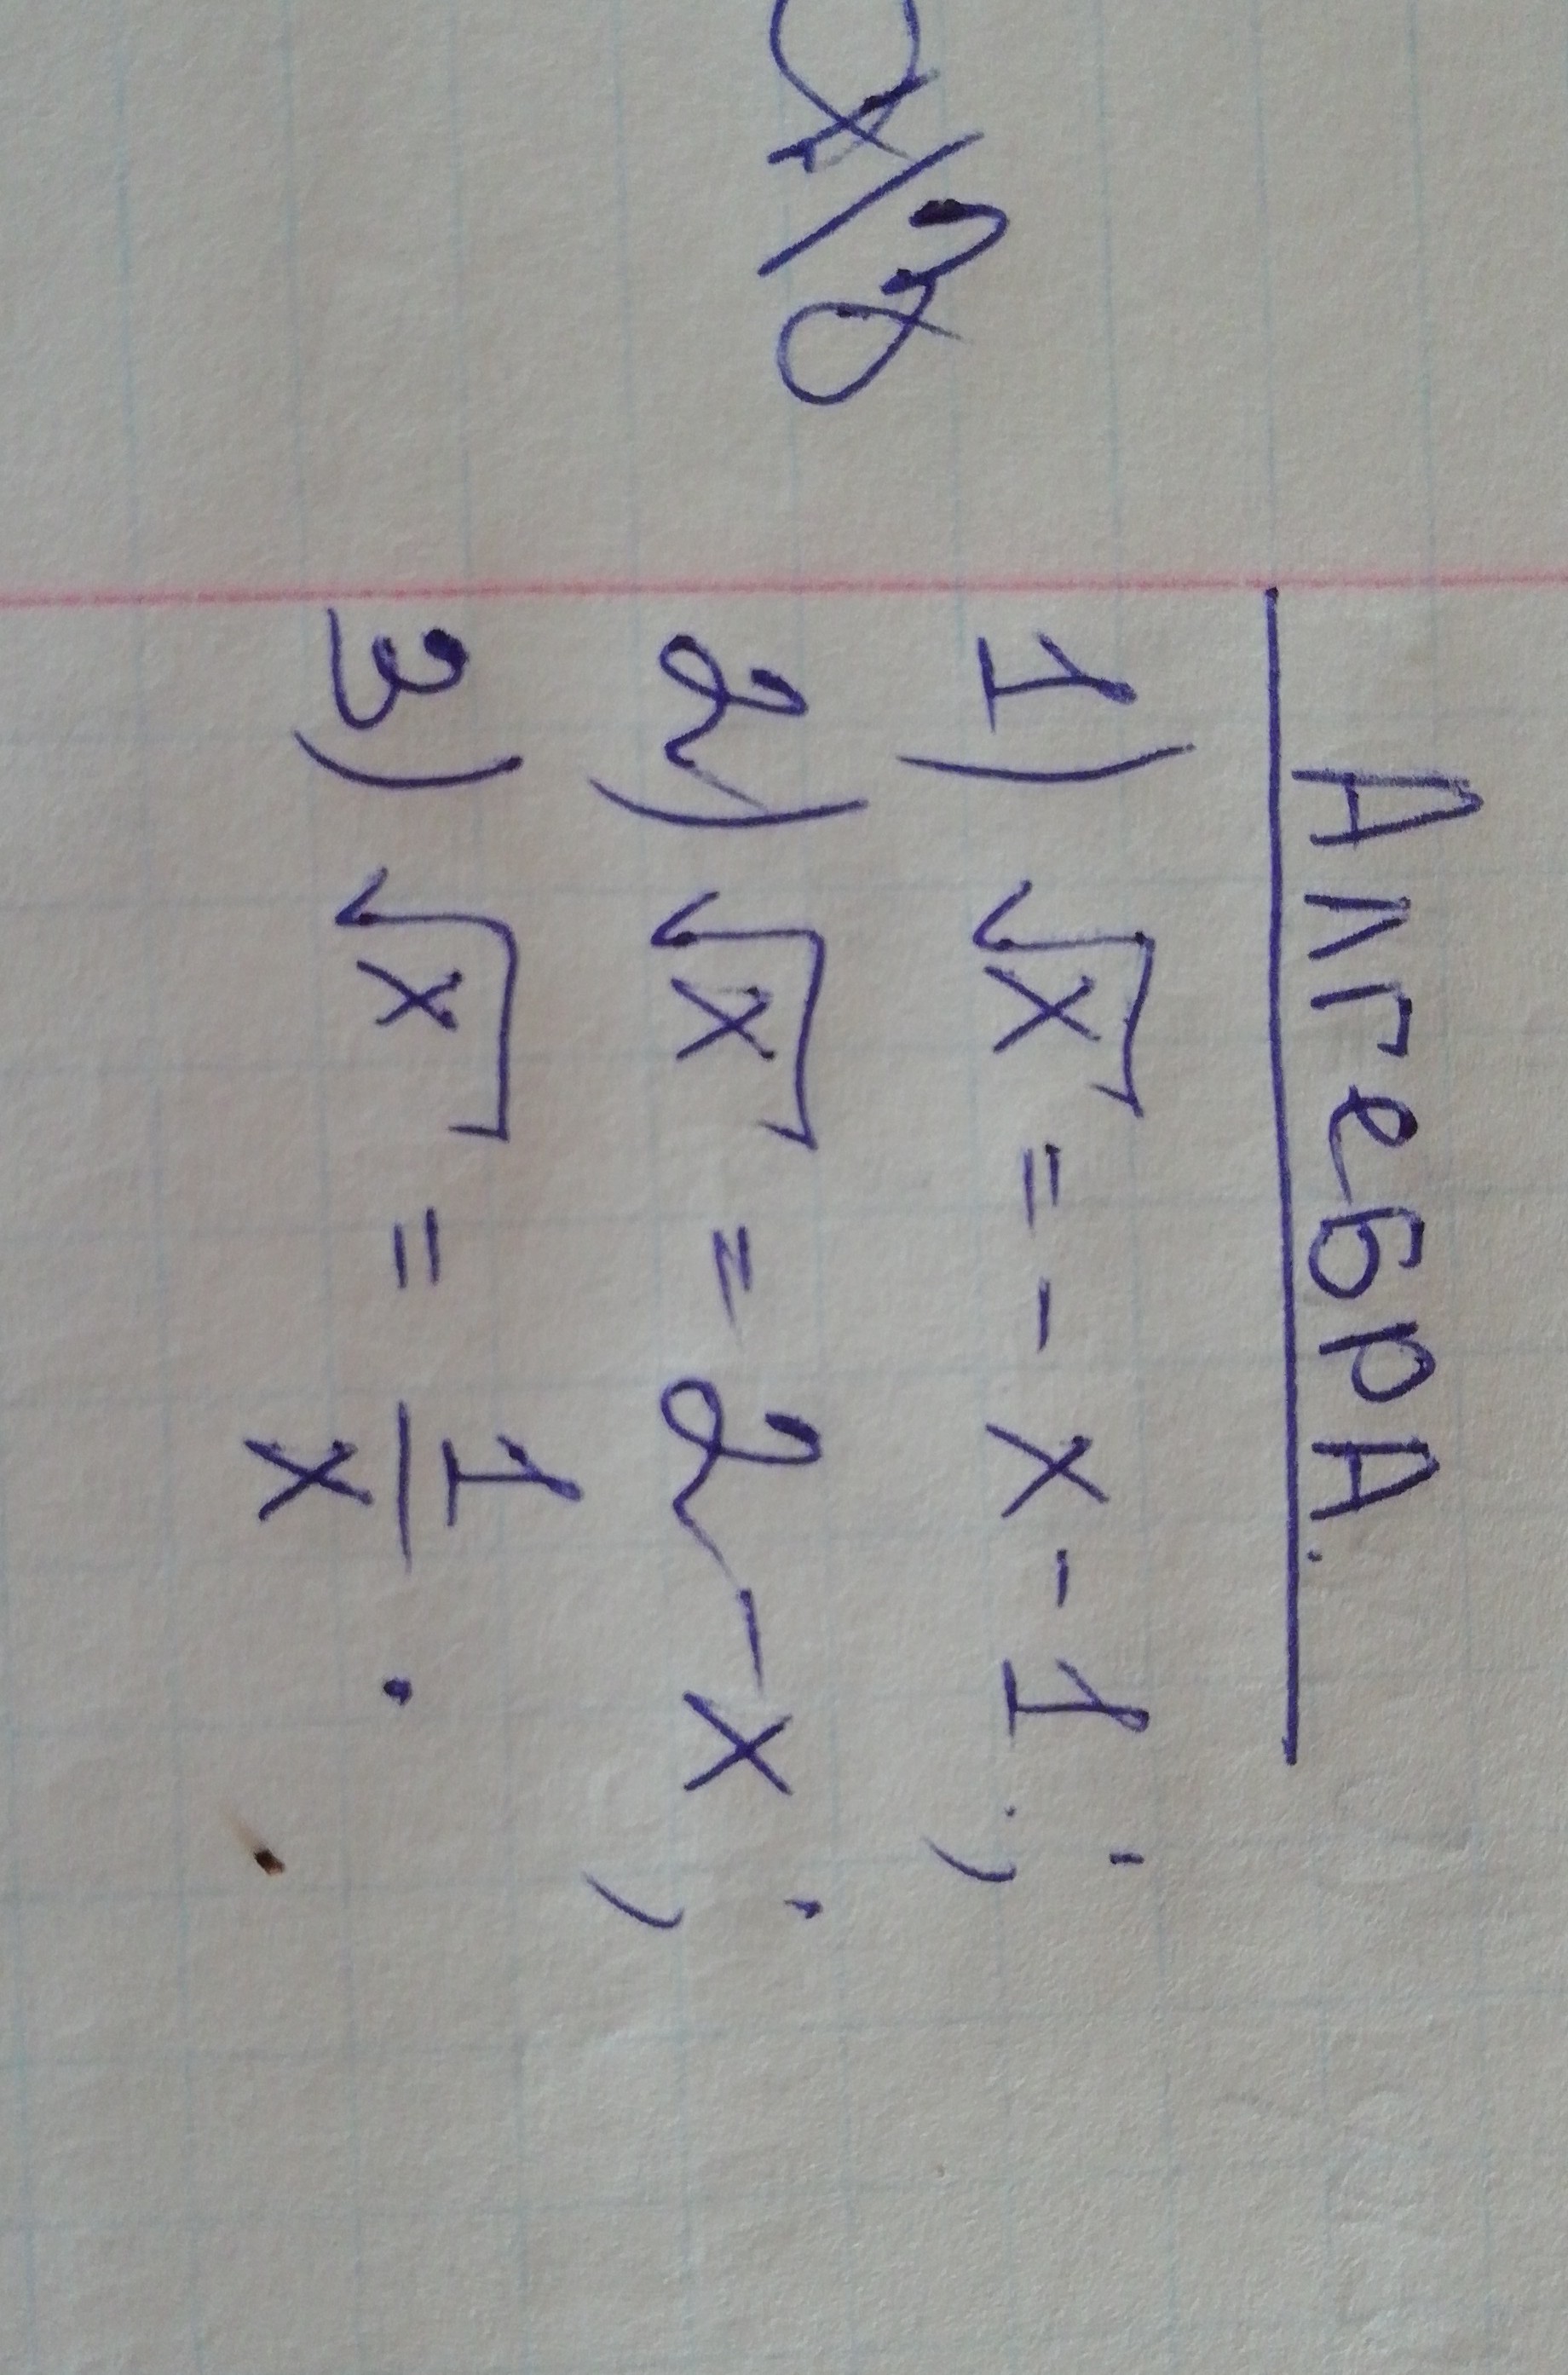 Алгебра.
1) √x = - x - 1;
2) √x = 2 - x;
3) √x = 1/x.